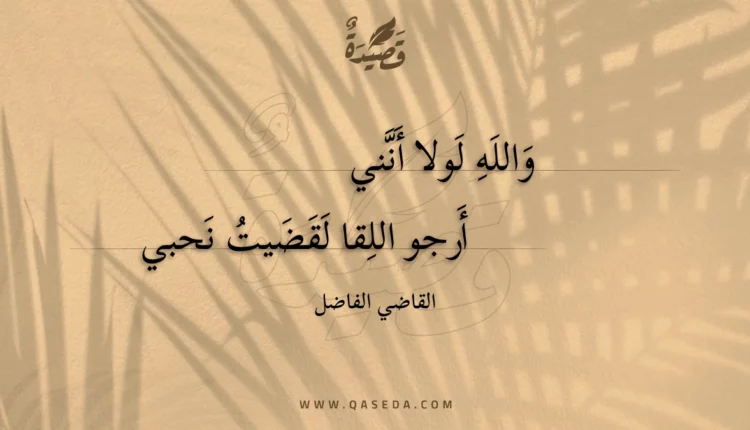 قَصِيدَةٌ
وَاللَهِ لَولا أَنَّني
أَرجو اللِقا لَقَضَيتُ نَحبي
القاضي الفاضل
WWW.QASEDA.COM